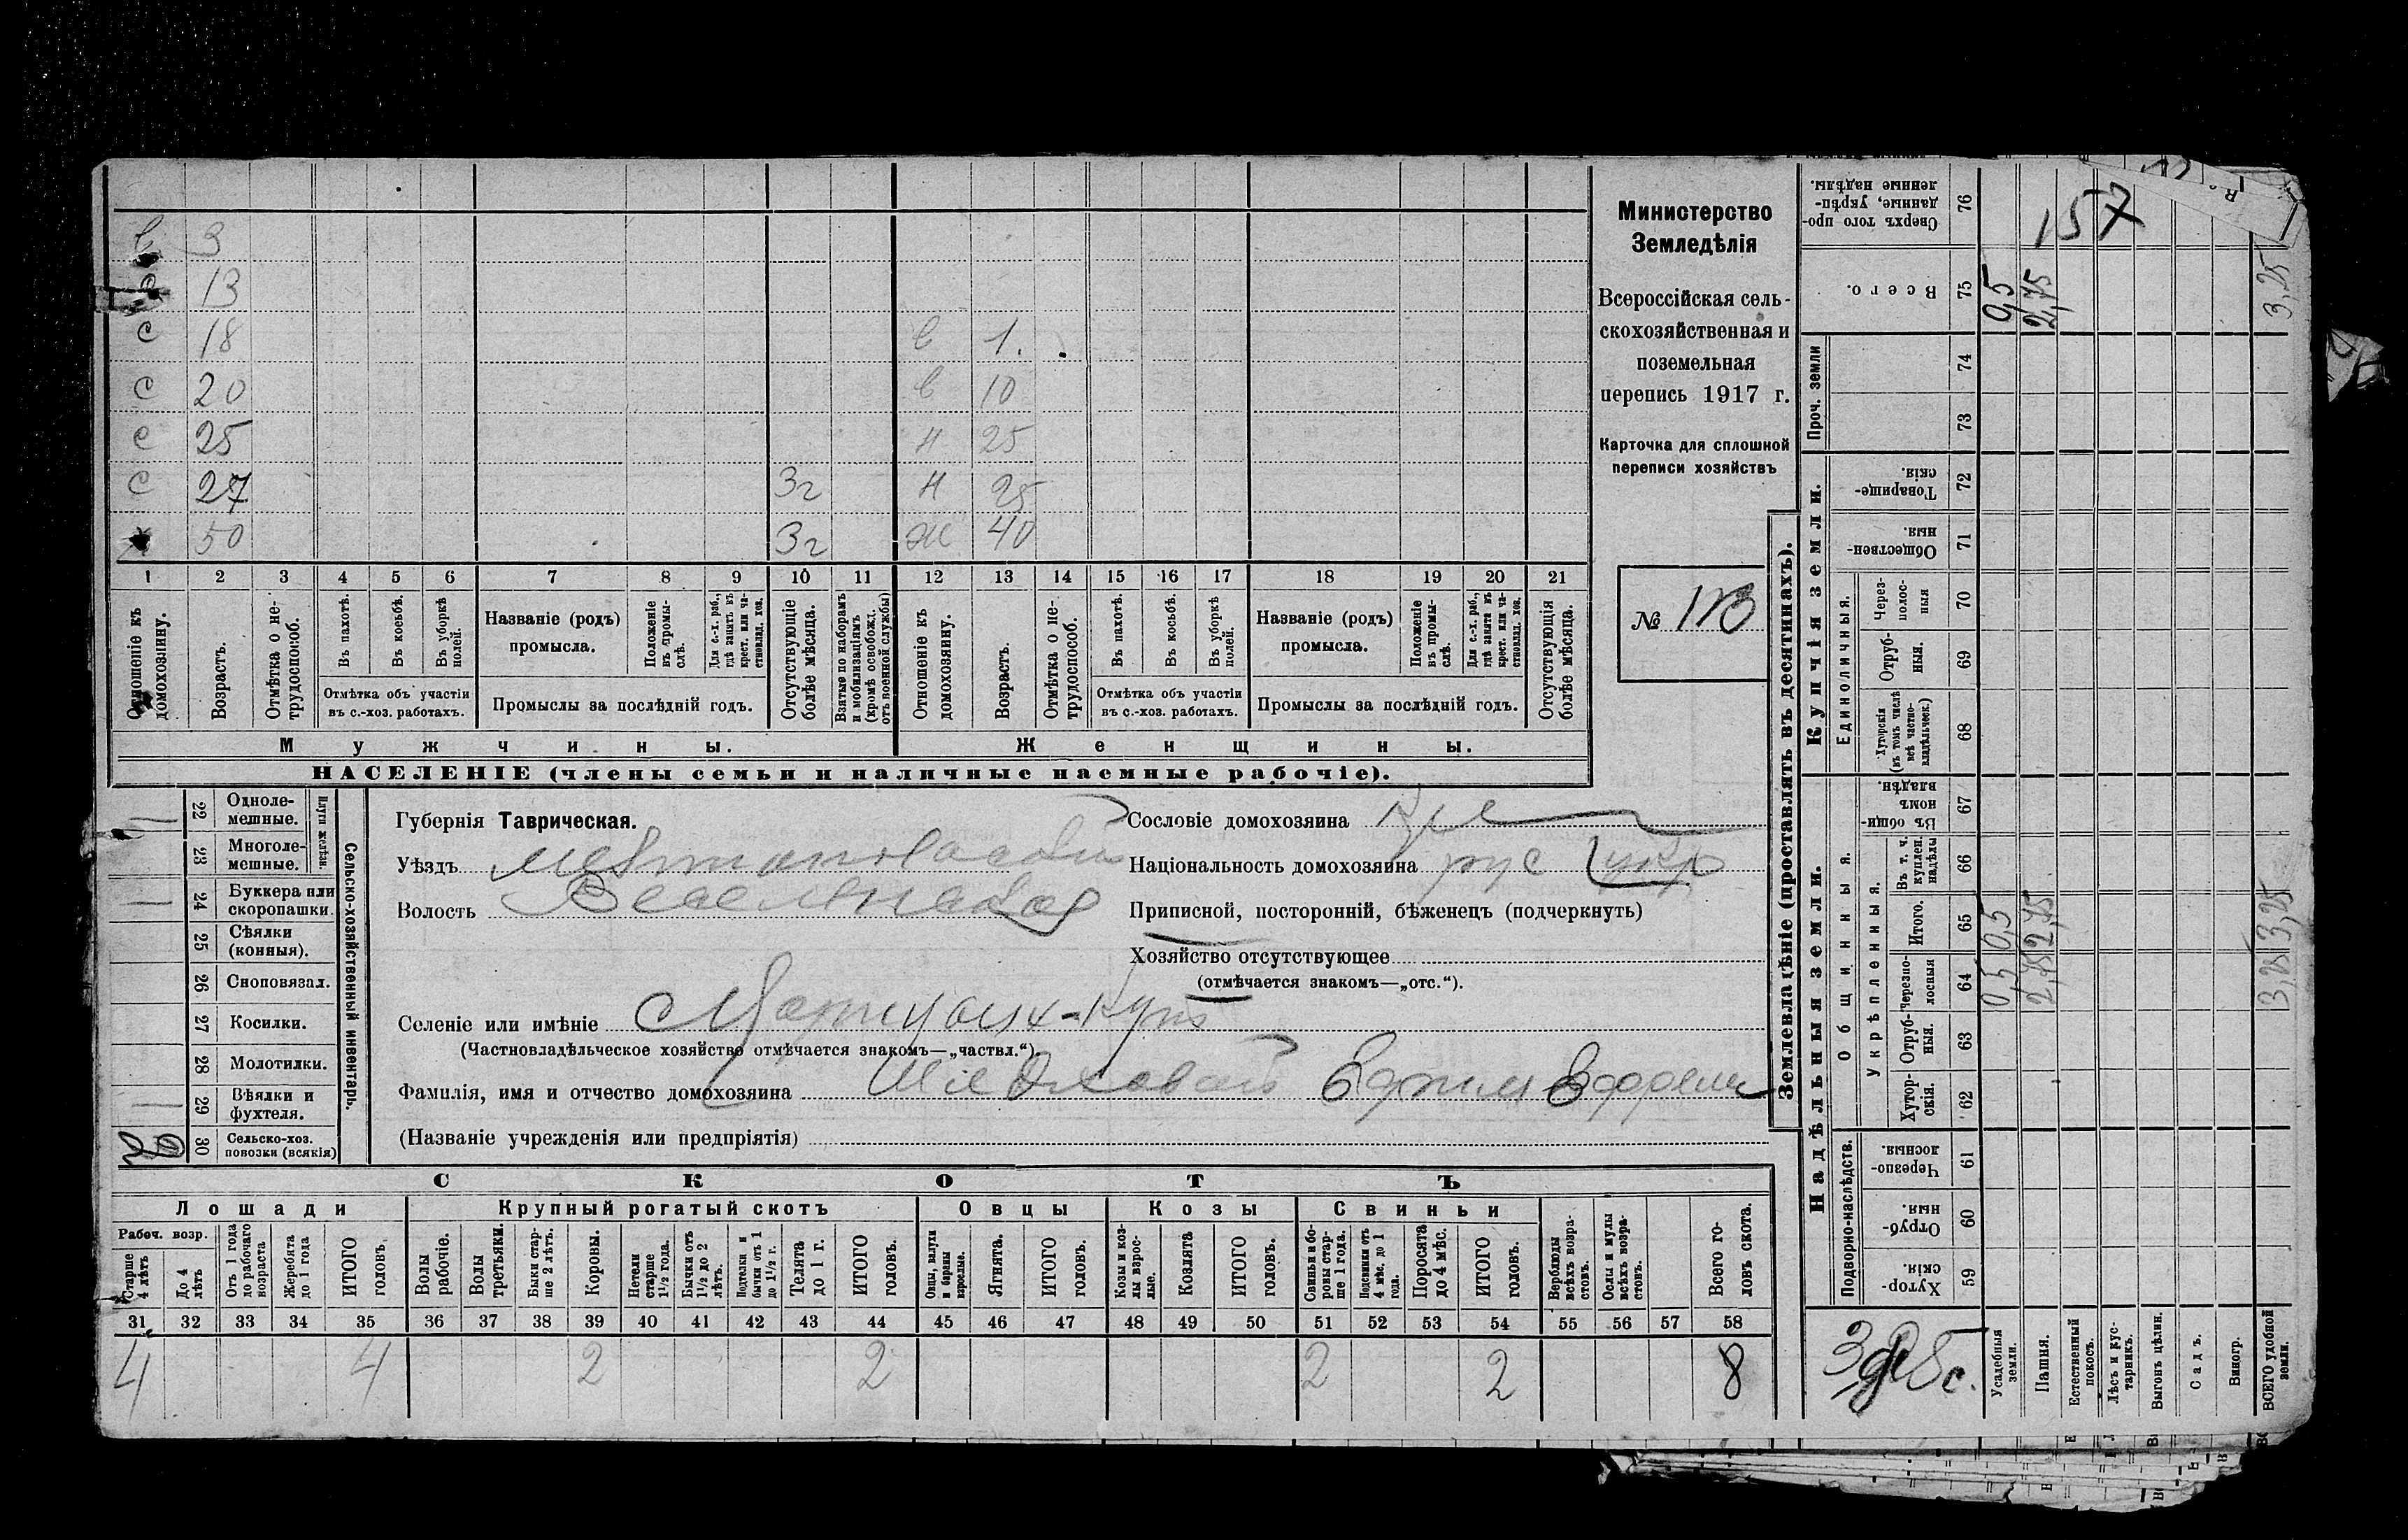 в 3
13
с 18 в 1.
с 20 в 10
с 25 н 25
с 27 3г н 25
50 3г ж 40
1 2 3 4 5 6 7 8 9 10 11 12 13 14 15 16 17 18 19 20 21
Отношеніе къ домохозяину.
Возрастъ.
Отмѣтка о нетрудоспособ.
Въ пахотѣ.
Въ косьбѣ.
Въ уборкѣ полей.
Отмѣтка объ участіи
въ с.-хоз. работахъ.
Названіе (родъ)
промысла.
Положеніе въ промыслѣ.
Для с.-х. раб., гдѣ занятъ въ крест. или частновлад. хоз.
Промыслы за послѣдній годъ.
Отсутствующіе болѣе мѣсяца.
Взятые по наборамъ и мобилизаціямъ (кромѣ освобожд. отъ военной службы)
Отношеніе къ домохозяину.
Возрастъ.
Отмѣтка о нетрудоспособ.
Въ пахотѣ.
Въ косьбѣ.
Въ уборкѣ полей.
Отмѣтка объ участіи
въ с.-хоз. работахъ.
Названіе (родъ)
промысла.
Положеніе въ промыслѣ.
Для с.-х. раб., гдѣ занята въ крест. или частновлад. хоз.
Промыслы за послѣдній годъ.
Отсутствующія болѣе мѣсяца.
Мужчины. Женщины.
НАСЕЛЕНІЕ (члены семьи и наличные наемные рабочіе).
Министерство
Земледѣлія
Всероссійская сель-
скохозяйственная и
поземельная
перепись 1917 г.
Карточка для сплошной
переписи хозяйствъ
№ 113
Сельско-хозяйственный инвентарь.
Плуги желѣзн.
22 Однолемешные.
23 Многолемешные.
24 Буккера или скоропашки.
25 Сѣялки (конныя).
26 Сноповязал.
27 Косилки.
28 Молотилки.
29 Вѣялки и фухтеля.
30 Сельско-хоз. повозки (всякія)
Губернія Таврическая.
Уѣздъ Мелитопольскій
Волость Веселовская
Селеніе или имѣніе
(Частновладѣльческое хозяйство отмѣчается знакомъ—„частвл.“).
Фамилія, имя и отчество домохозяина Ефим Ефрем
(Названіе учрежденія или предпріятія)
Сословіе домохозяина Кр
Національность домохозяина рус укр
Приписной, посторонній, бѣженецъ (подчеркнуть)
Хозяйство отсутствующее
(отмѣчается знакомъ—„отс.“).
СКОТЪ
Лошади Крупный рогатый скотъ Овцы Козы Свиньи
Рабоч. возр.
Старше 4 лѣтъ
До 4 лѣтъ
Отъ 1 года до рабочаго возраста
Жеребята до 1 года
ИТОГО головъ.
Волы рабочіе.
Волы третьяки.
Быки старше 2 лѣтъ.
Коровы.
Нетели старше 1½ года.
Бычки отъ 1½ до 2 лѣтъ.
Подтелки и бычки отъ 1 до 1½ г.
Телята до 1 г.
ИТОГО головъ.
Овцы, валухи и бараны взрослые.
Ягнята.
ИТОГО головъ.
Козы и козлы взрослые.
Козлята
ИТОГО головъ.
Свиньи и боровы старше 1 года.
Подсвинки отъ 4 мѣс. до 1 года.
Поросята до 4 мѣс.
ИТОГО головъ.
Верблюды всѣхъ возрастовъ.
Ослы и мулы всѣхъ возрастовъ.
Всего головъ скота.
31 32 33 34 35 36 37 38 39 40 41 42 43 44 45 46 47 48 49 50 51 52 53 54 55 56 57 58
4 4 2 2 2 2 8
Землевладѣніе (проставлять въ десятинахъ).
157
Сверхъ того проданные, укрѣпленные надѣлы. 76
Всего. 75 0,5 2,75 3,25
Проч. земли 74 73
Купчія земли.
Товарищескія. 72
Общественныя. 71
Единоличныя.
Черезполосныя 70
Отрубныя. 69
Хуторскія (въ томъ числѣ всѣ частновладѣльческ.) 68
Надѣльныя земли.
Общинныя.
Въ общинномъ владѣн. 67
Укрѣпленныя.
Въ т. ч. куплен. надѣлы 66
Итого. 65 0,5 2,75 3,25
Черезполосныя 64 0,5 2,75 3,25
Отрубныя. 63
Хуторскія. 62
Подворно-наслѣдств.
Черезполосныя. 61
Отрубныя. 60
Хуторскія. 59
Усадебныя земли.
Пашня.
Естественный покосъ.
Лѣсъ и кустарникъ.
Выгонъ цѣлин.
Садъ.
Виногр.
ВСЕГО удобной земли.